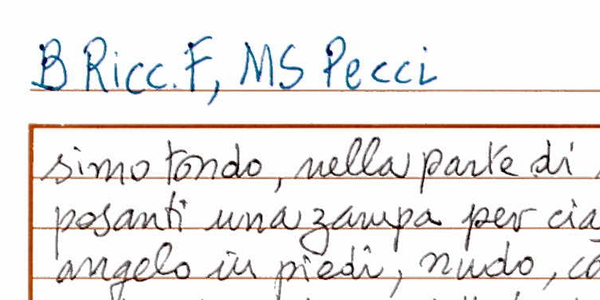 B Ricc. F, MS Pecci
simo tondo, nella parte di
posanti una zampa per cia
angelo in piedi, nudo, co